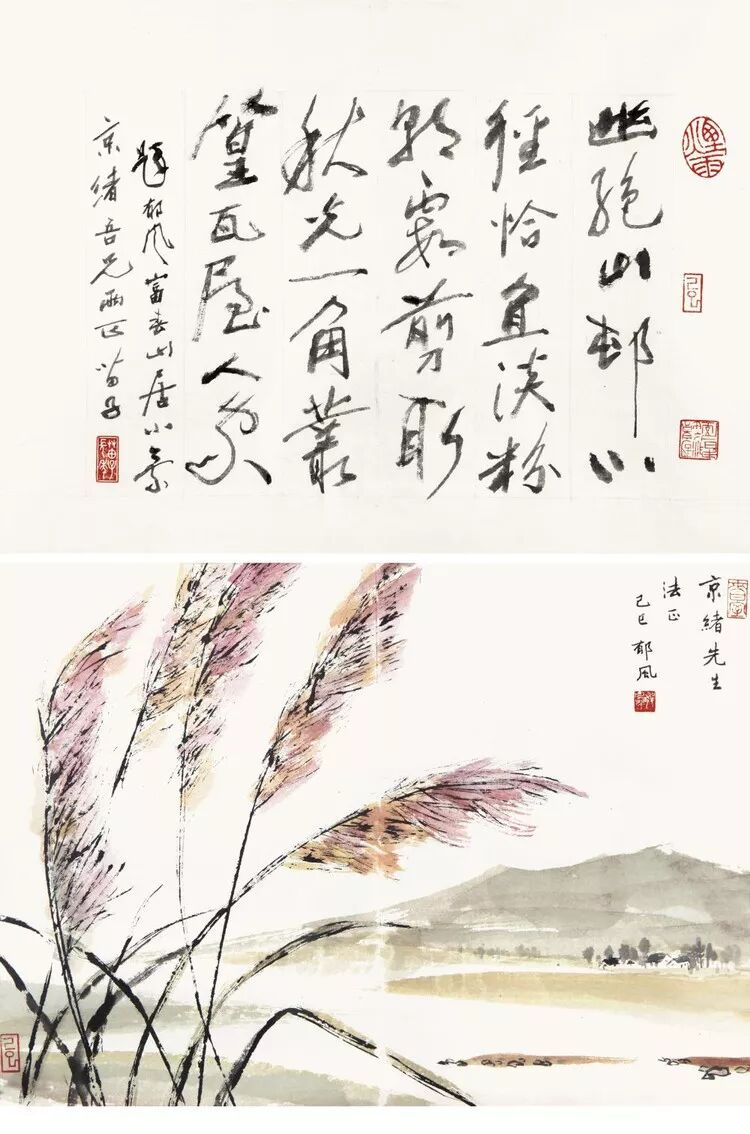 幽絕山邨小
徑恰宜淡粉
霞剪取
秋光一角叢
篁瓦屋人家
題郁风富春山居小景
京緒吾兄兩正 苗子
京緒先生
法正
己巳 郁風